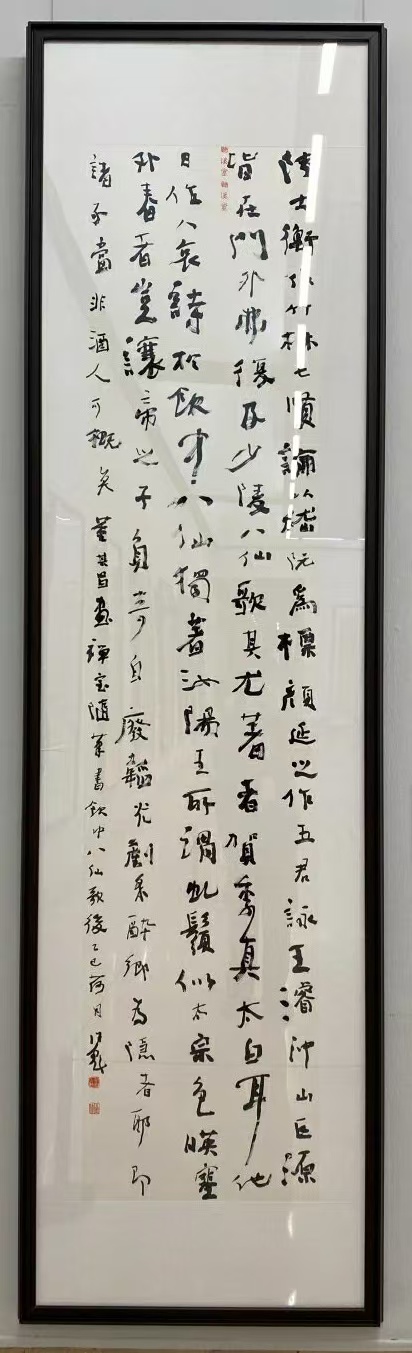 陸士衡作竹林七賢論以嵇阮為標顏延之作五君詠王濬沖山巨源
皆在門外弗援及少陵八仙歌其尤著者賀季真太白耳他
日作八哀詩於飲中八仙獨著汝陽王所謂虬鬚似太宗色映塞
外春者豈讓帝之子負奇自廢韜光剷采醉鄉為隱者耶即
諸子當非酒人可概矣 董其昌畫禪室隨筆書飲中八仙歌後乙巳荷月